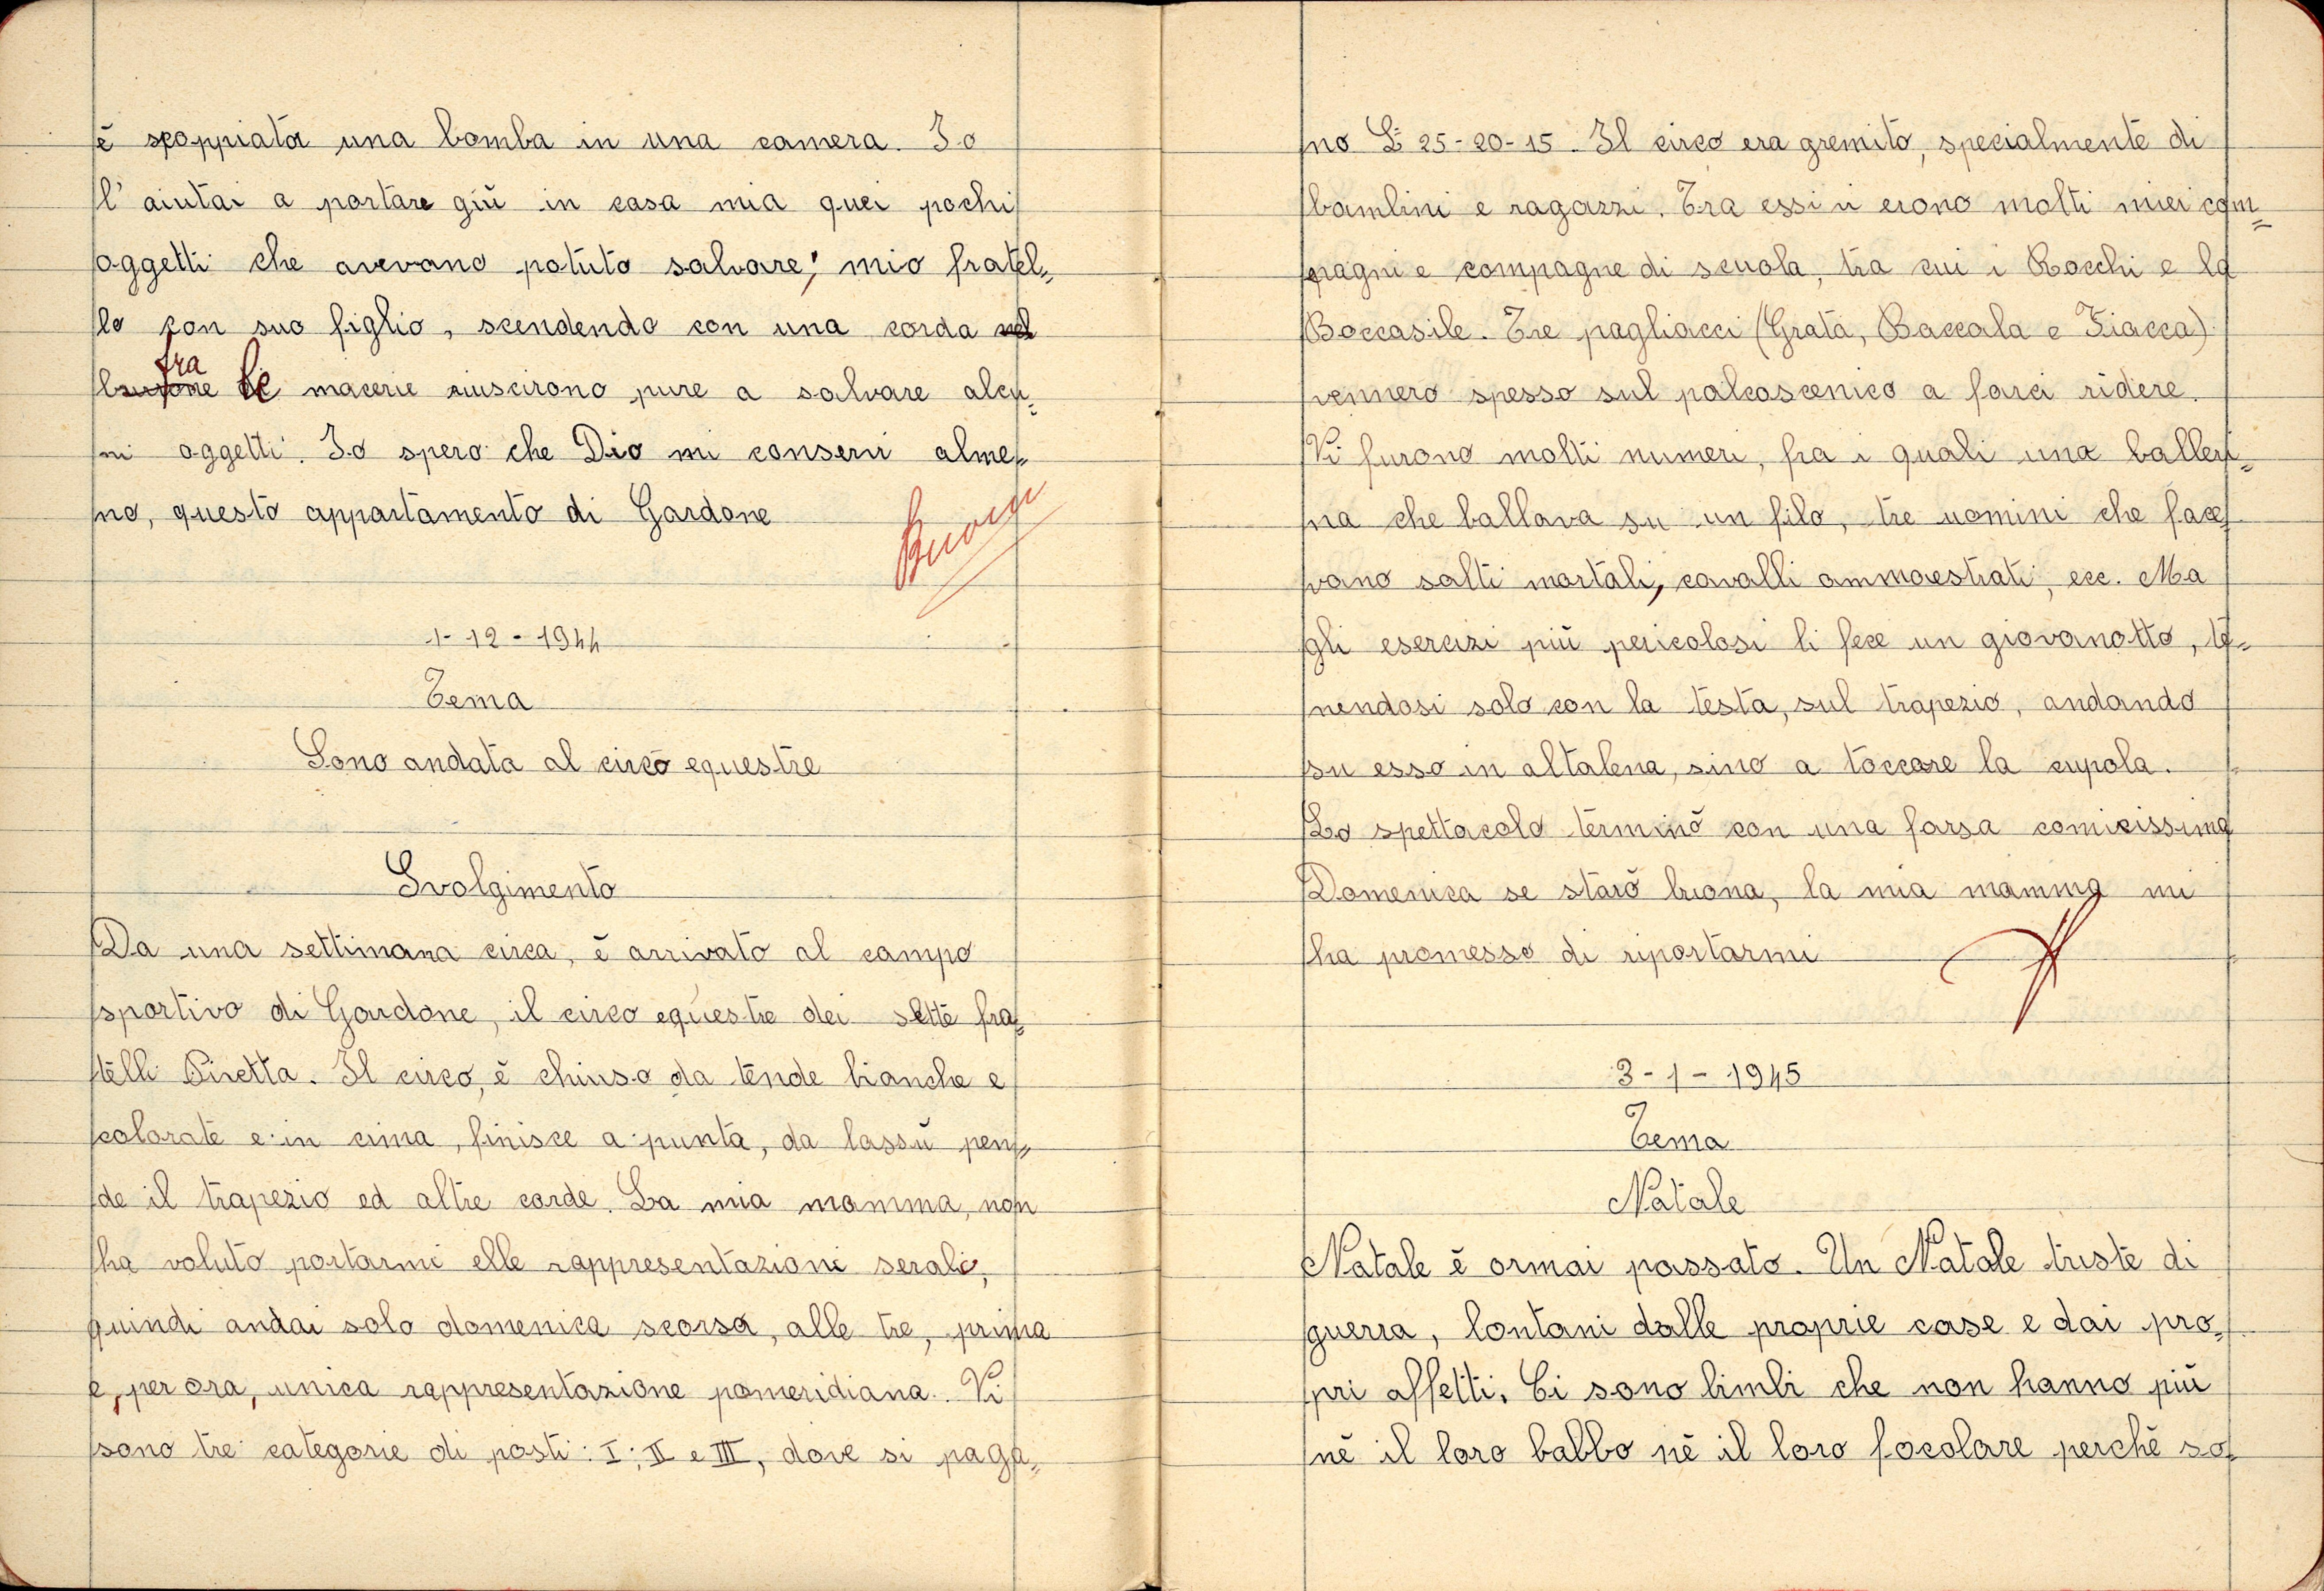 è scoppiata una bomba in una camera. Io
l'aiutai a portare giù in casa mia quei pochi
oggetti che avevano potuto salvare; mio fratel=
lo con suo figlio, scendendo con una corda nel
fra
burrone le macerie riuscirono pure a salvare alcu=
ni oggetti. Io spero che Dio mi conservi alme=
no, questo appartamento di Gardone
Buono
1-12-1944
Tema
Sono andata al circo equestre
Svolgimento
Da una settimana circa, è arrivato al campo
sportivo di Gardone, il circo equestre dei sette fra=
telli Piretta. Il circo, è chiuso da tende bianche e
colorate e in cima, finisce a punta, da lassù pen=
de il trapezio ed altre corde. La mia mamma, non
ha voluto portarmi elle rappresentazioni serali,
quindi andai solo domenica scorsa, alle tre, prima
e, per ora, unica rappresentazione pomeridiana. Vi
sono tre categorie di posti: I; II e III, dove si paga=
no £ 25-20-15. Il circo era gremito, specialmente di
bambini e ragazzi. Tra essi vi erono molti miei com=
pagni e compagne di scuola, tra cui i Rocchi e la
Boccasile. Tre pagliacci (Grata, Baccala e Fiacca)
vennero spesso sul palcoscenico a farci ridere.
Vi furono molti numeri, fra i quali una balleri=
na che ballava su un filo, tre uomini che face=
vano salti mortali, cavalli ammaestrati, ecc. Ma
gli esercizi più pericolosi li fece un giovanotto, te=
nendosi solo con la testa, sul trapezio, andando
su esso in altalena, sino a toccare la cupola.
Lo spettacolo terminò con una farsa comicissima
Domenica se starò buona, la mia mamma mi
ha promesso di riportarmi
3-1-1945
Tema
Natale
Natale è ormai passato. Un Natale triste di
guerra, lontani dalle proprie case e dai pro=
pri affetti. Ci sono bimbi che non hanno più
nè il loro babbo nè il loro focolare perchè so=